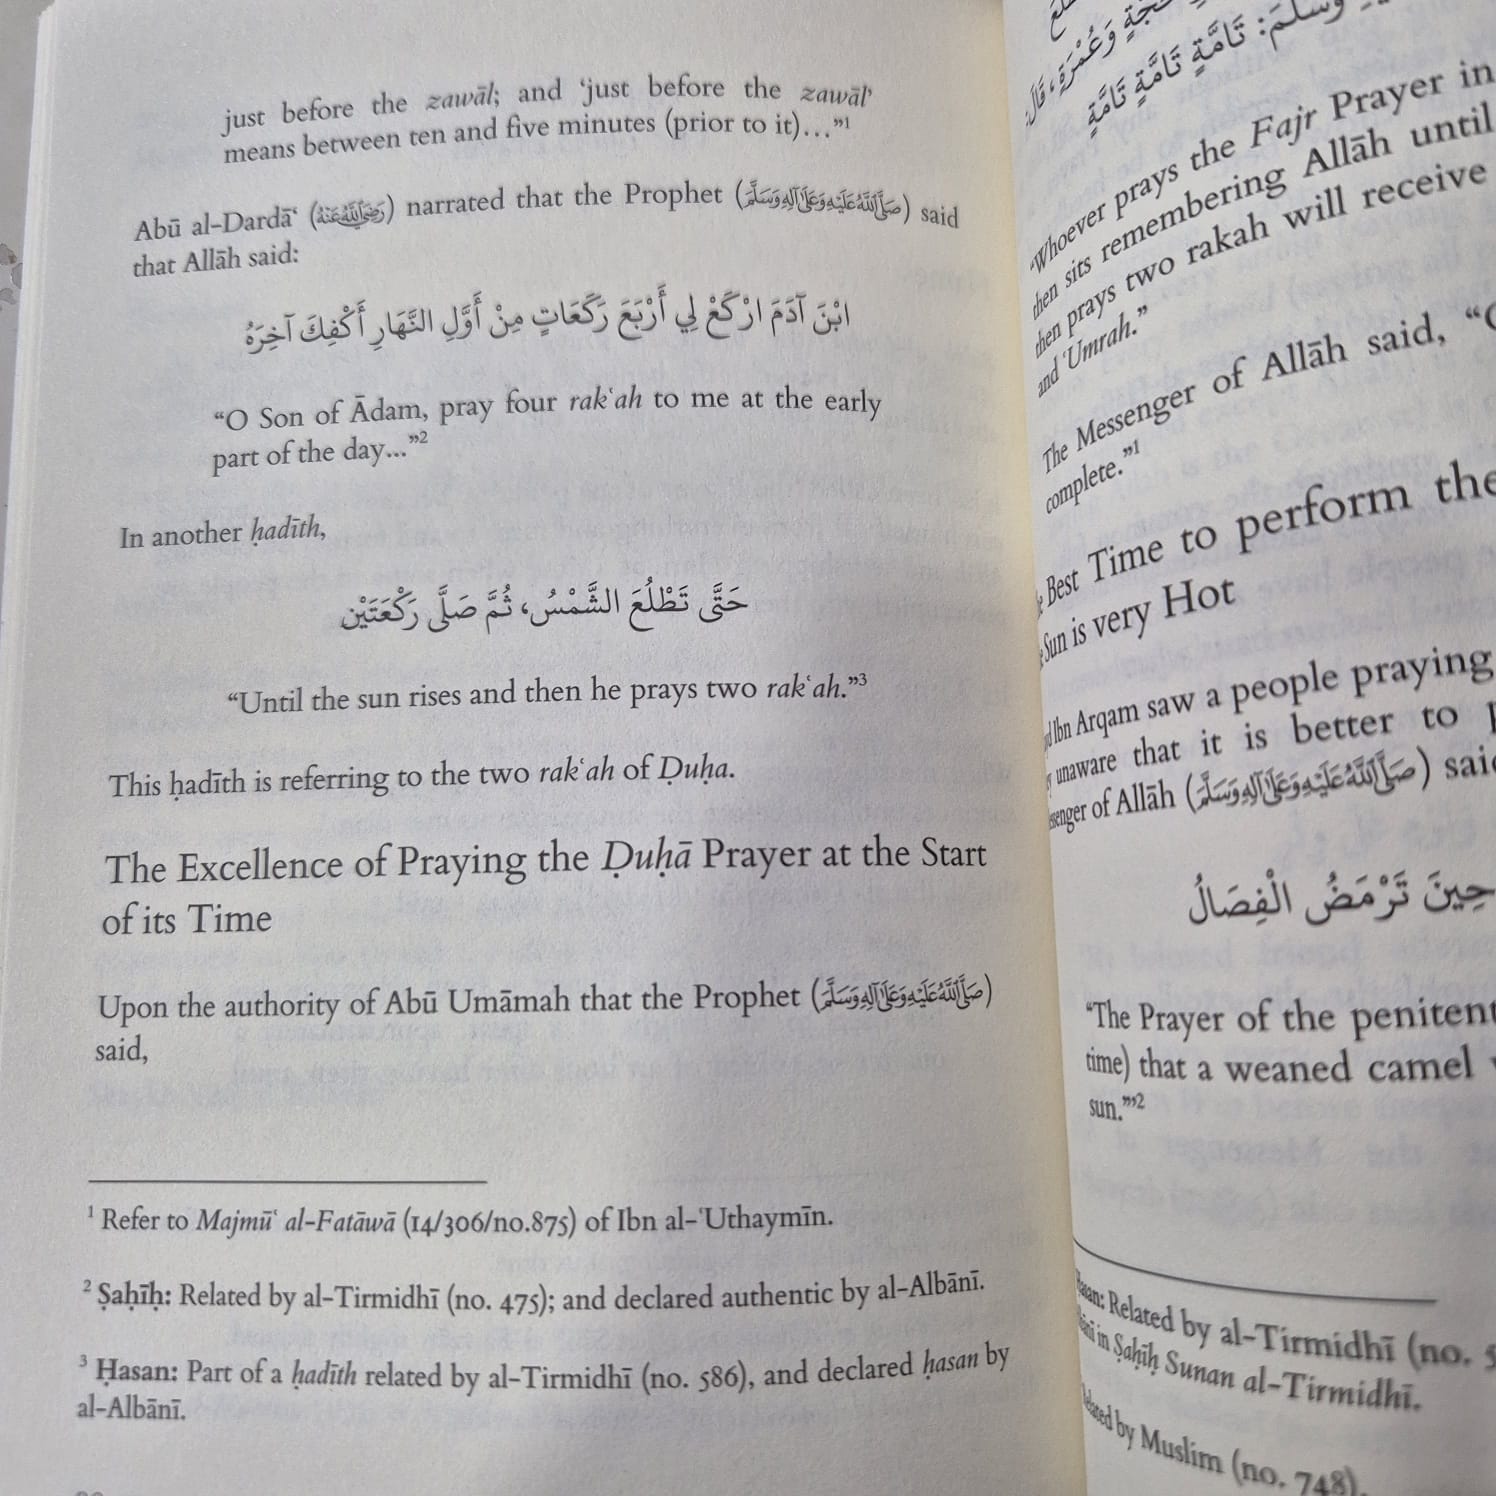 just before the zawāl; and ‘just before the zawāl’
means between ten and five minutes (prior to it)…”1
Abū al-Dardā‘ (رَضِيَ اللَّهُ عَنْهُ) narrated that the Prophet (صَلَّى اللَّهُ عَلَيْهِ وَعَلَى آلِهِ وَسَلَّمَ) said
that Allāh said:
ابْنَ آدَمَ ارْكَعْ لِي أَرْبَعَ رَكَعَاتٍ مِنْ أَوَّلِ النَّهَارِ أَكْفِكَ آخِرَهُ
“O Son of Ādam, pray four rak‘ah to me at the early
part of the day...”2
In another ḥadīth,
حَتَّى تَطْلُعَ الشَّمْسُ، ثُمَّ صَلَّى رَكْعَتَيْنِ
“Until the sun rises and then he prays two rak‘ah.”3
This ḥadīth is referring to the two rak‘ah of Ḍuḥa.
The Excellence of Praying the Ḍuḥā Prayer at the Start
of its Time
Upon the authority of Abū Umāmah that the Prophet (صَلَّى اللَّهُ عَلَيْهِ وَعَلَى آلِهِ وَسَلَّمَ)
said,
1 Refer to Majmū‘ al-Fatāwā (14/306/no.875) of Ibn al-‘Uthaymīn.
2 Ṣaḥīḥ: Related by al-Tirmidhī (no. 475); and declared authentic by al-Albānī.
3 Ḥasan: Part of a ḥadīth related by al-Tirmidhī (no. 586), and declared ḥasan by
al-Albānī.
وَعُمْرَةٍ، قَالَ
وَسَلَّمَ: تَامَّةٍ تَامَّةٍ تَامَّةٍ
“Whoever prays the Fajr Prayer in
then sits remembering Allāh until
then prays two rakah will receive
and ‘Umrah.”
The Messenger of Allāh said,
complete.”1
Best Time to perform the
Sun is very Hot
Ibn Arqam saw a people praying
unaware that it is better to
of Allāh (صَلَّى اللَّهُ عَلَيْهِ وَعَلَى آلِهِ وَسَلَّمَ) said
حِينَ تَرْمَضُ الْفِصَالُ
“The Prayer of the penitent
time) that a weaned camel
sun.”’2
Related by al-Tirmidhī (no.
in Ṣaḥīḥ Sunan al-Tirmidhī.
by Muslim (no. 748).